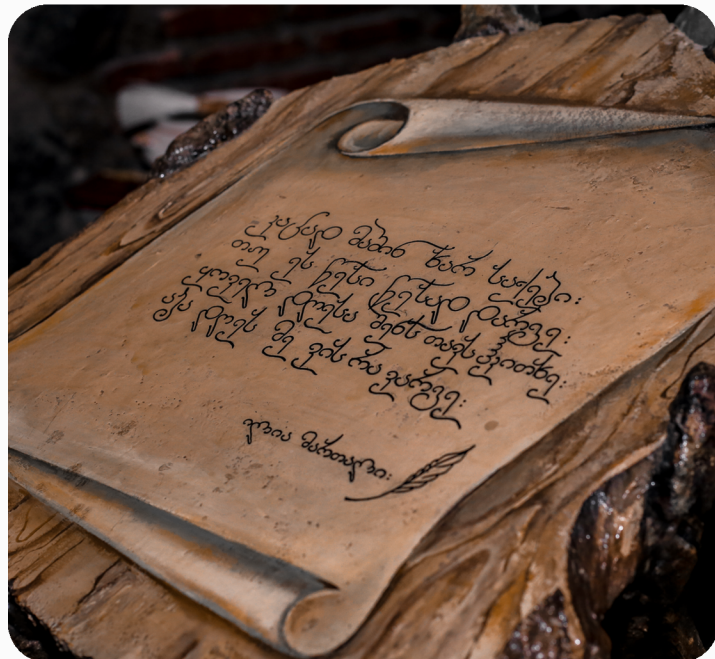 კაცად მაშინ ხარ საქები:
თუ ეს წესი წესად დარგე:
ყოველ დღესა შენს თავს ჰკითხე:
აბა დღეს მე ვის რა ვარგე:
ილია მართალი: